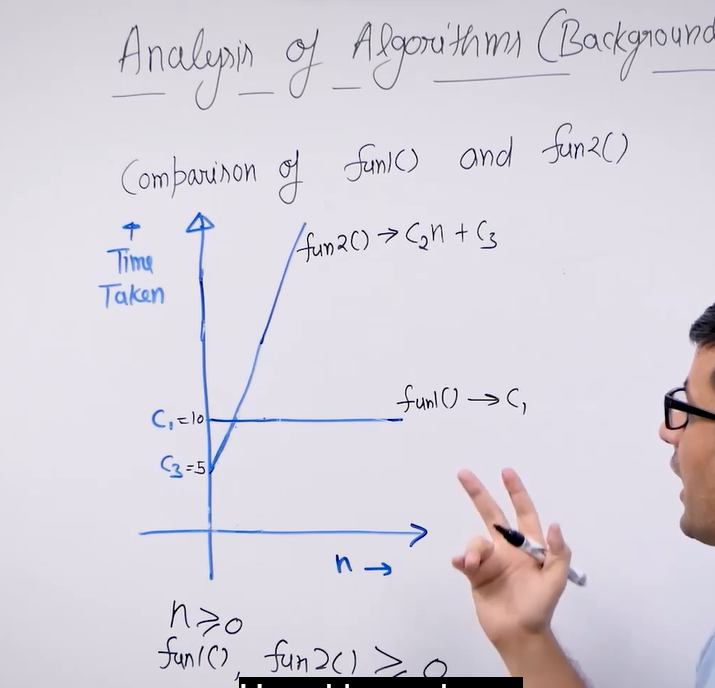 Analysis of Algorithms (Background
Comparison of fun1() and fun2()
↑
Time
Taken
fun2() → C₂n + C₃
fun1() → C₁
C₁=10
C₃=5
n →
n ≥ 0
fun1(), fun2() ≥ 0